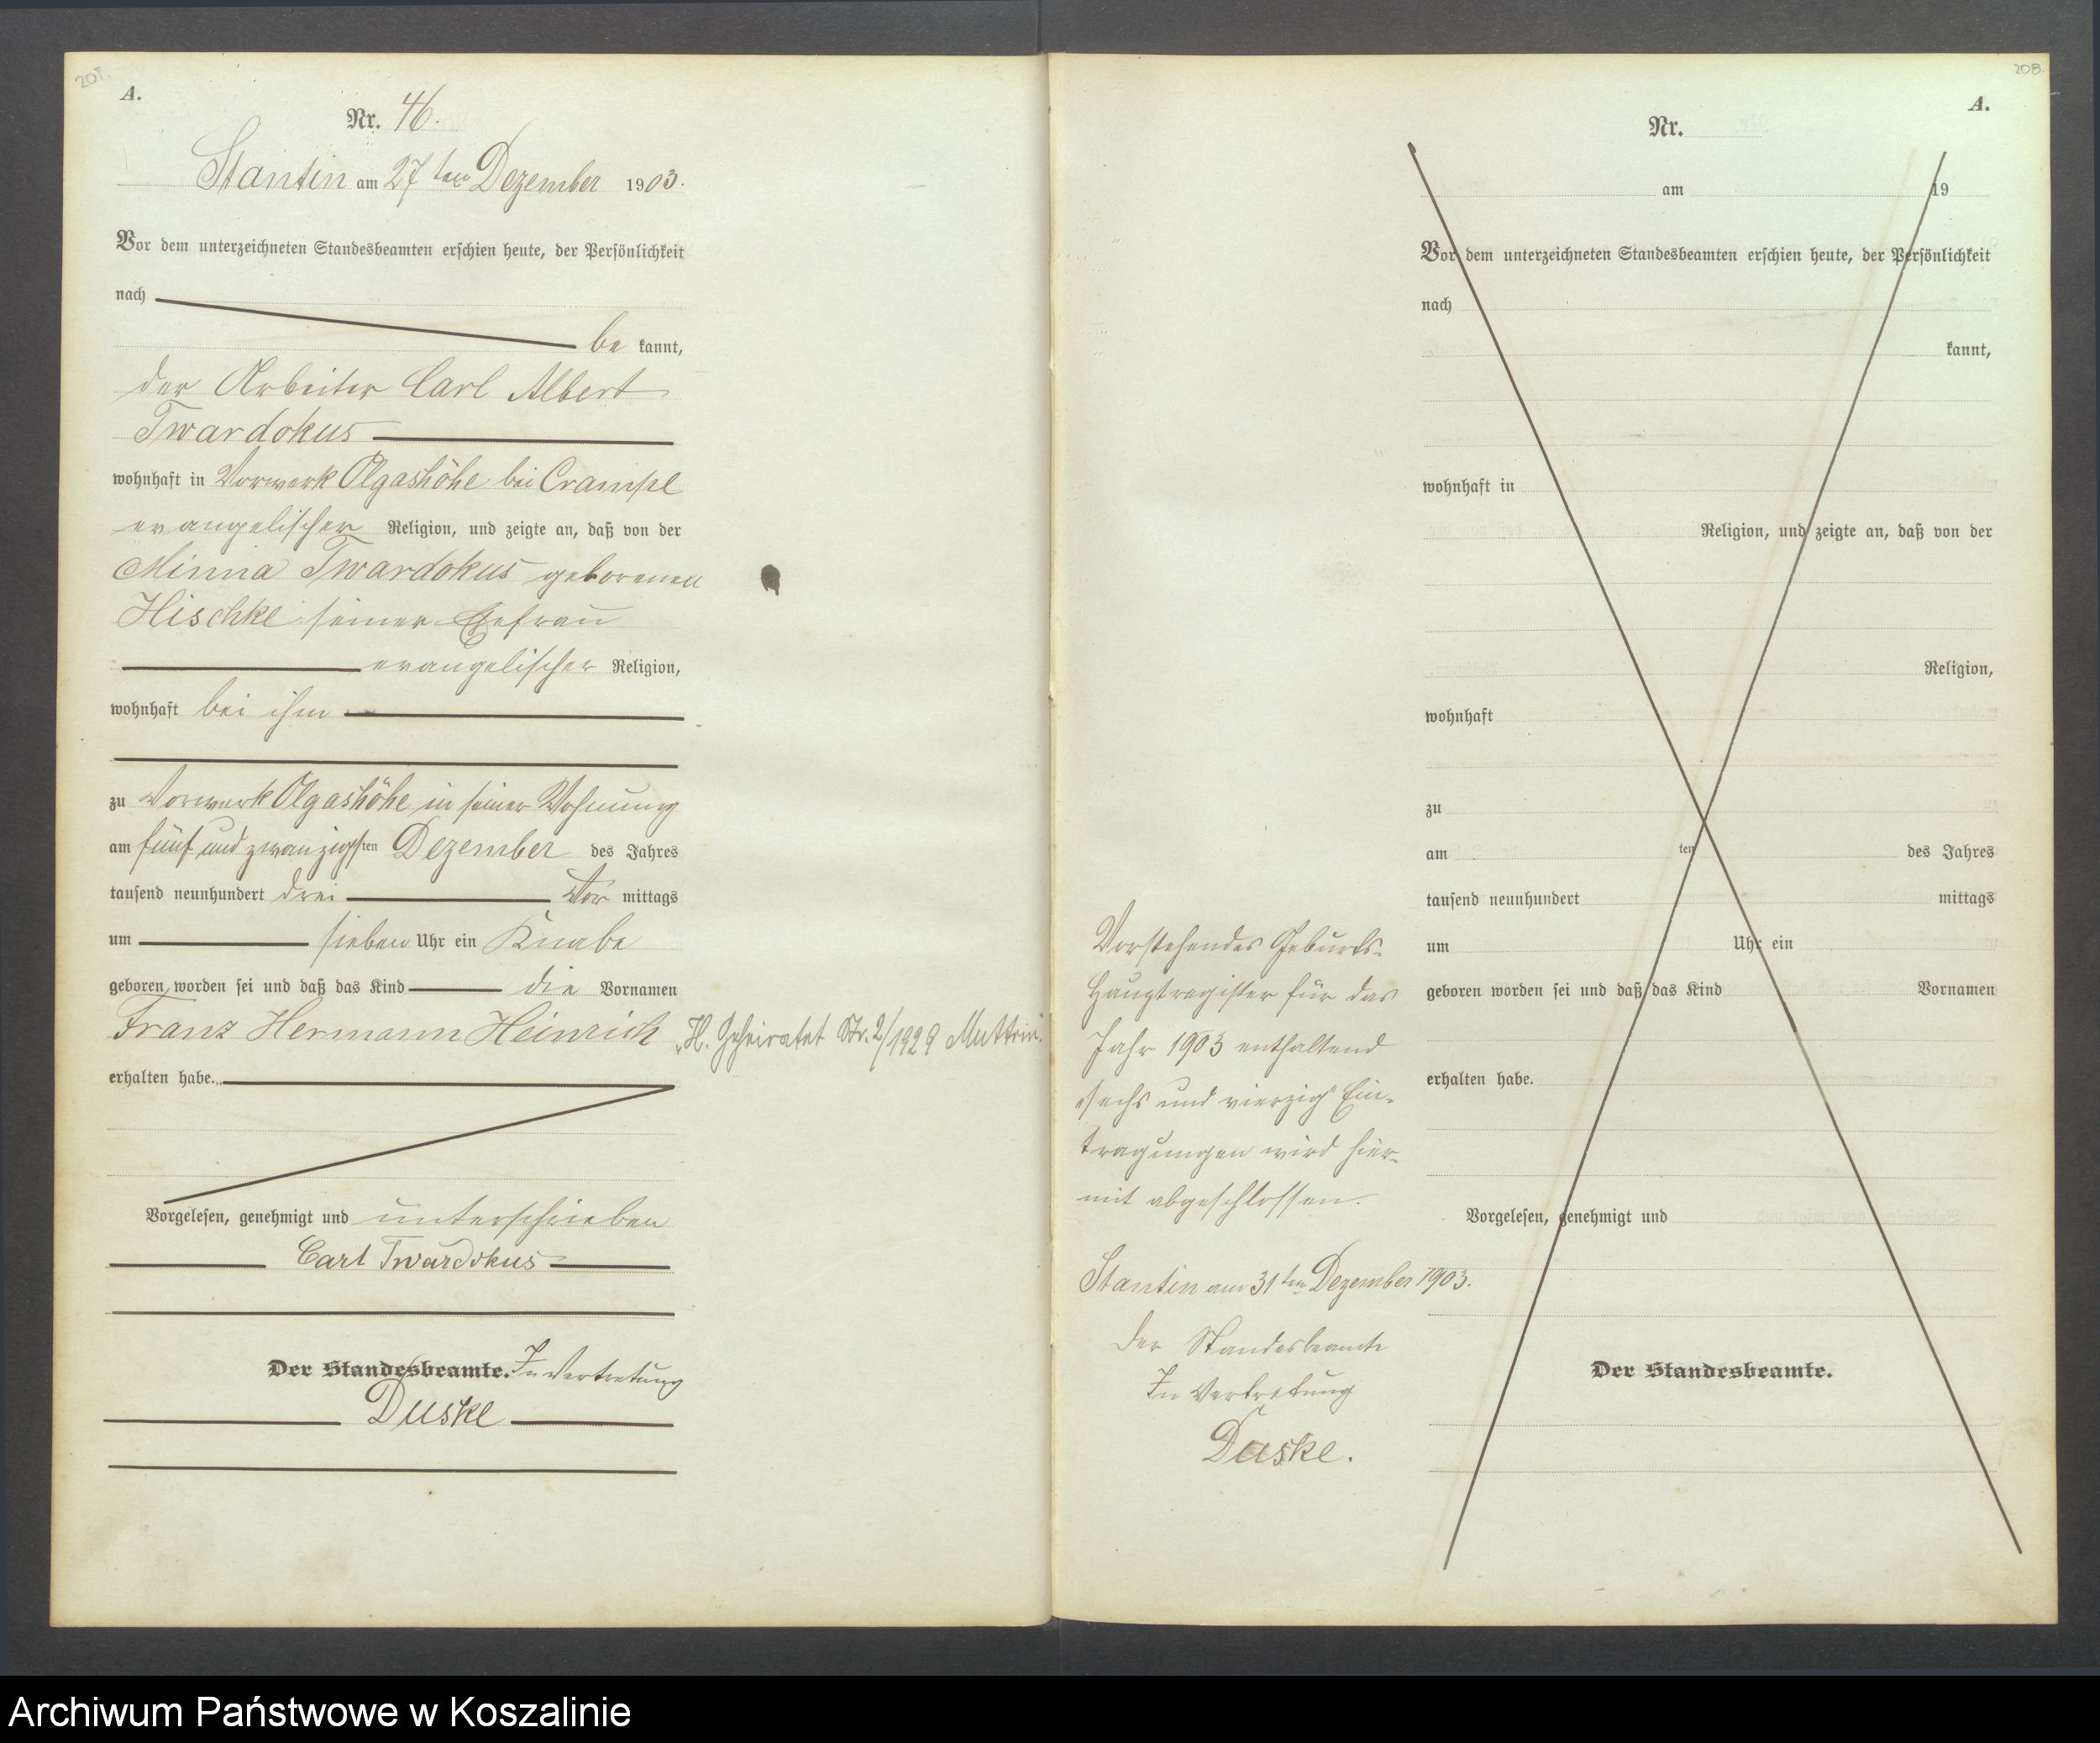 207.
A.
Nr. 46.
Stantin am 27ten Dezember 1903.
Vor dem unterzeichneten Standesbeamten erschien heute, der Persönlichkeit
nach
be kannt,
der Arbeiter Carl Albert
Twardokus
wohnhaft in Vorwerk Olgashöhe bei Crampe
evangelischer Religion, und zeigte an, daß von der
Minna Twardokus geborenen
Hischke seiner Ehefrau
evangelischer Religion,
wohnhaft bei ihm
zu Vorwerk Olgashöhe in seiner Wohnung
am fünf und zwanzigsten Dezember des Jahres
tausend neunhundert drei Vor mittags
um sieben Uhr ein Knabe
geboren worden sei und daß das Kind die Vornamen
Franz Hermann Heinrich
„H. Geheiratet Nr. 2/1929 Muttrin".
erhalten habe.
Vorgelesen, genehmigt und unterschrieben
Carl Twardokus
Der Standesbeamte. In Vertretung
Duske
208.
A.
Nr.
am 19
Vor dem unterzeichneten Standesbeamten erschien heute, der Persönlichkeit
nach
kannt,
wohnhaft in
Religion, und zeigte an, daß von der
Religion,
wohnhaft
zu
am ten des Jahres
tausend neunhundert mittags
um Uhr ein
geboren worden sei und daß das Kind Vornamen
erhalten habe.
Vorgelesen, genehmigt und
Der Standesbeamte.
Vorstehendes Geburts-
Hauptregister für das
Jahr 1903 enthaltend
„sechs und vierzig" Ein-
tragungen wird hier-
mit abgeschlossen.
Stantin am 31ten Dezember 1903.
Der Standesbeamte
In Vertretung
Duske.
Archiwum Państwowe w Koszalinie